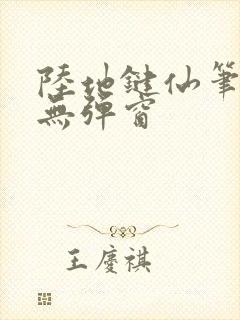 陸地鍵仙筆
無彈窗
王慶祺